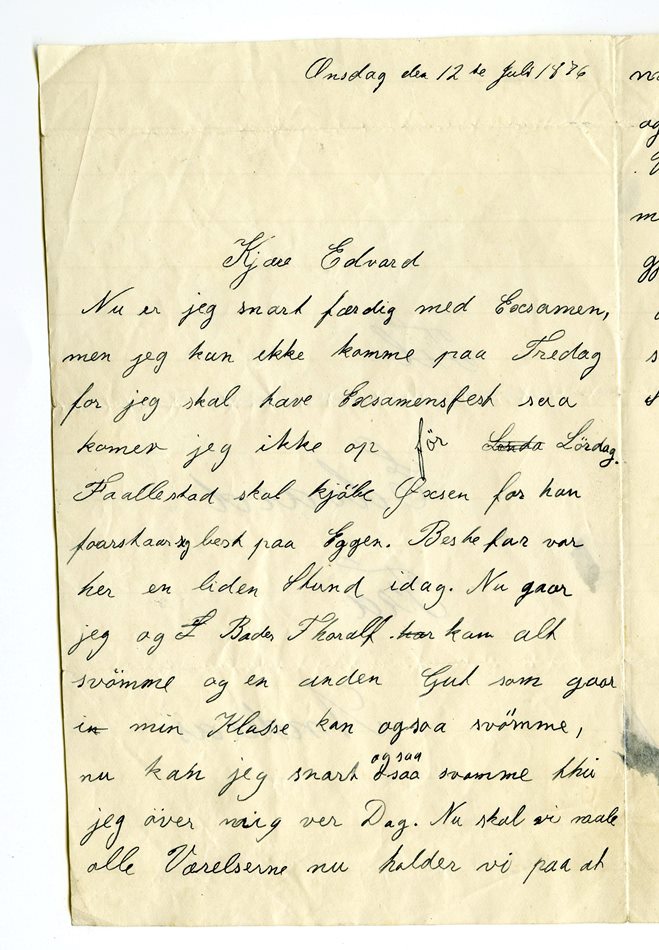 Onsdag den 12te Juli 1876
Kjære Edvard
Nu er jeg snart færdig med Exsamen,
men jeg kan ikke komme paa Fredag
for jeg skal have Exsamensfest saa
komer jeg ikke op för Lördag.
Faallestad skal kjöbe Øxsen for han
foarstaar sig best paa Eggen. Bestefar var
her en liden Stund idag. Nu gaar
jeg og Bader Thoralf kan alt
svömme og en anden Gut som gaar
i min Klasse kan ogsaa svömme,
nu kan jeg snart ogsaa svømme thi
jeg över mig ver Dag. Nu skal vi maale
alle Værelserne nu holder vi paa at